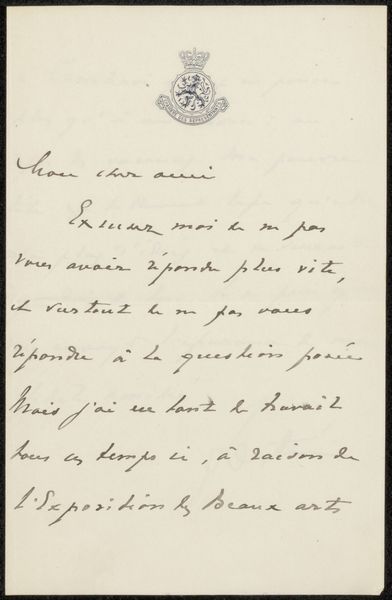 CHAMBRE DES REPRÉSENTANTS
Mon cher ami
Excusez moi de ne pas
vous avoir répondu plus vite,
et surtout de ne pas vous
répondre à la question posée
Mais j'ai eu tant de travail
tous ces temps ci, à raison de
l'Exposition des Beaux arts